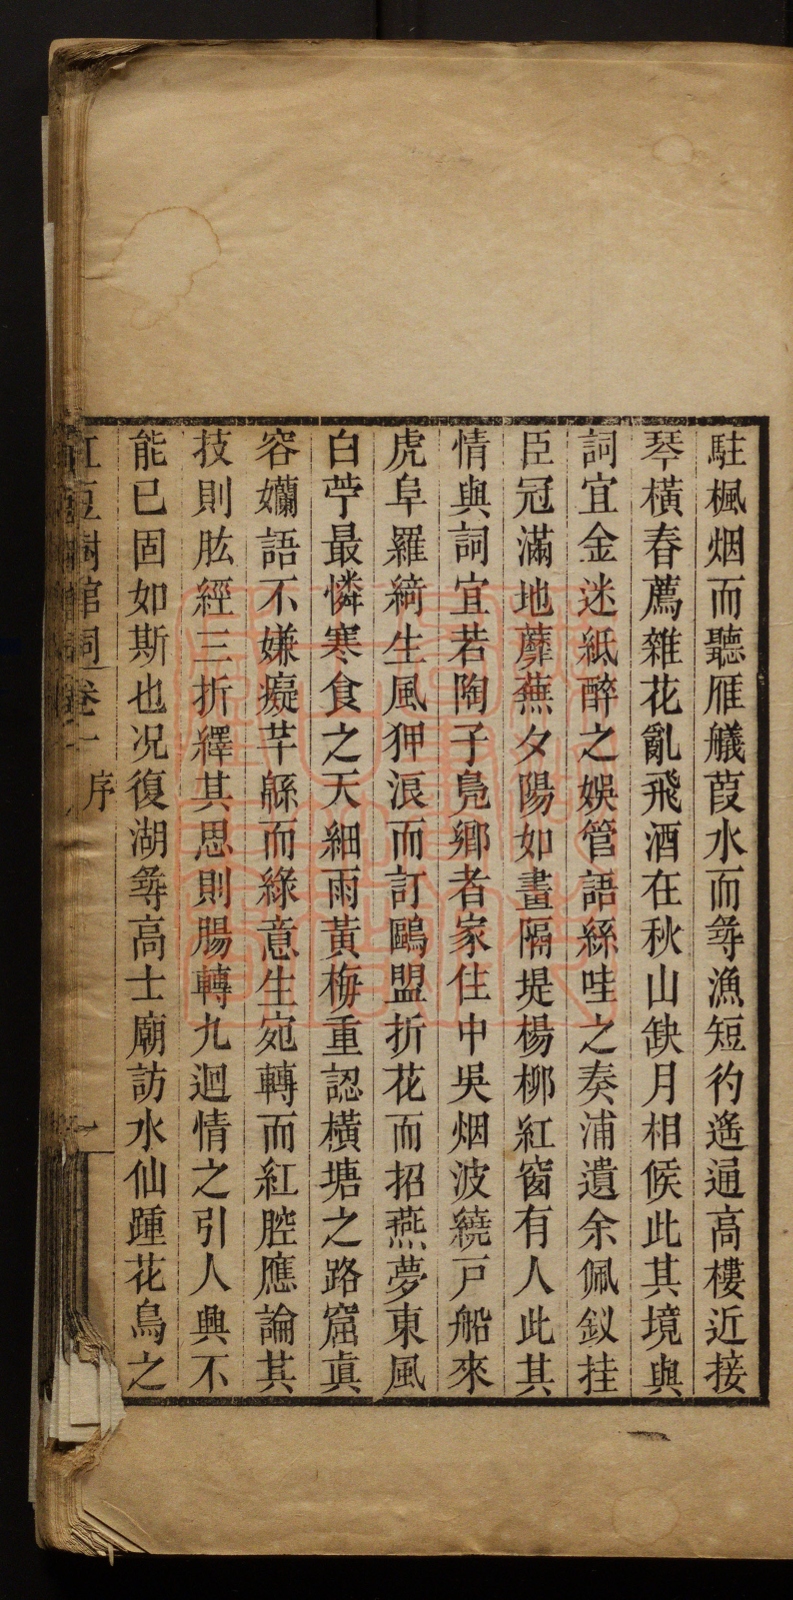 駐楓烟而聽雁艤葭水而尋漁短彴遙通高樓近接
琴橫春薦雜花亂飛酒在秋山缺月相候此其境與
詞宜金迷紙醉之娛管語絲哇之奏浦遺余佩釵挂
臣冠滿地蘼蕪夕陽如畫隔堤楊柳紅窗有人此其
情與詞宜若陶子鳧鄉者家住中吳烟波繞戸船來
虎阜羅綺生風狎浪而訂鷗盟折花而招燕夢東風
白苧最憐寒食之天細雨黃梅重認橫塘之路窟真
容孏語不嫌癡芊緜而綠意生宛轉而紅腔應論其
技則肱經三折繹其思則腸轉九迴情之引人興不
能已固如斯也况復湖尋高士廟訪水仙踵花鳥之
紅豆樹館詞卷一 序 一